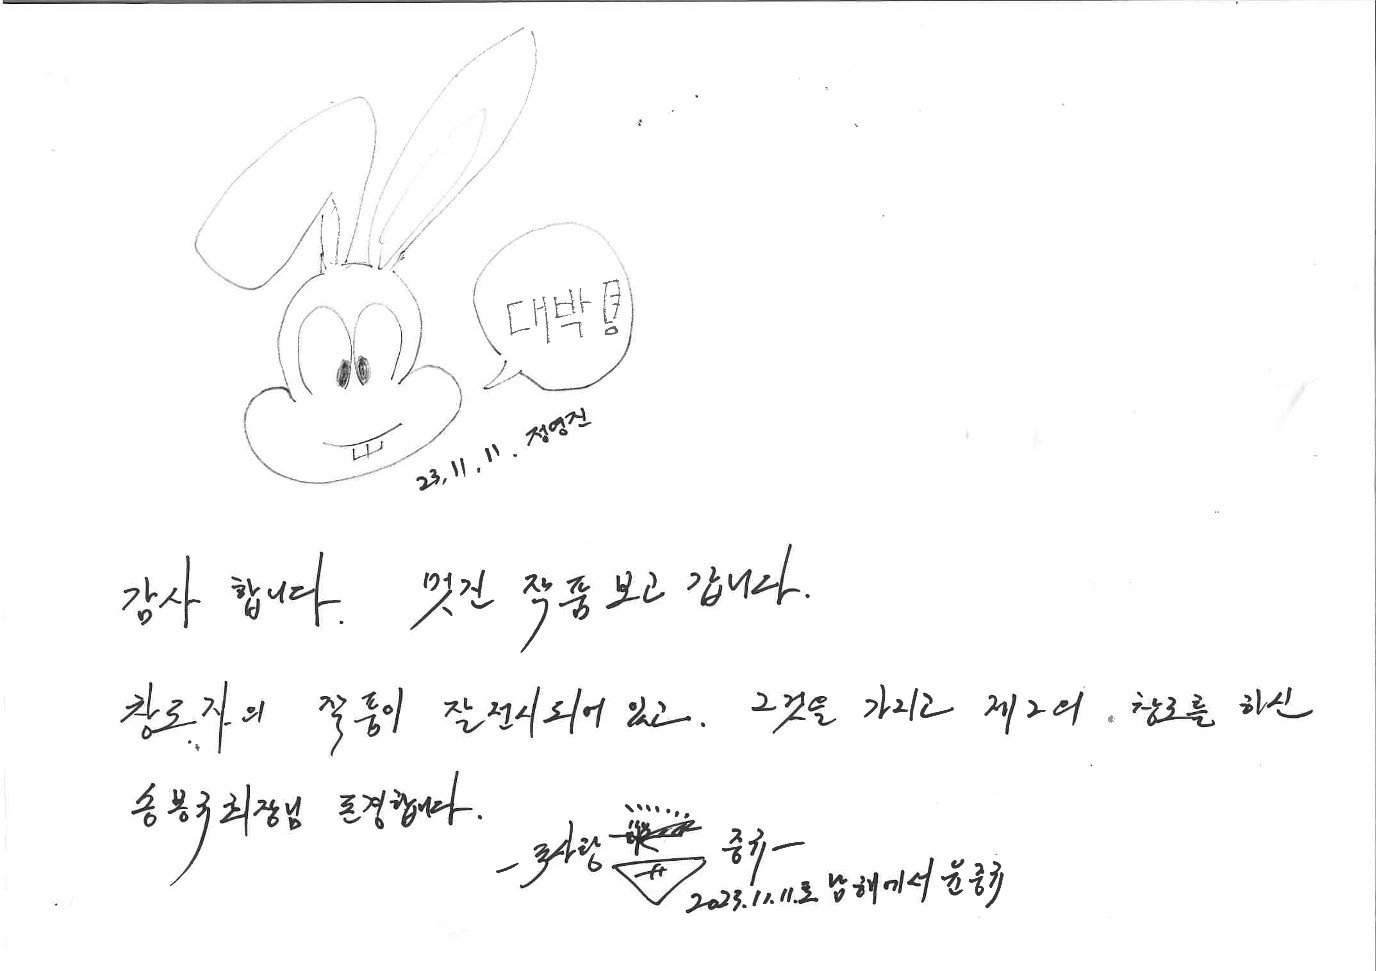 대박!
23.11.11. 정영진
감사 합니다. 멋진 작품 보고 갑니다.
창조자의 작품이 잘 전시되어 있고. 그것을 가지고 제2의 창조를 하신
송봉규회장님 존경합니다.
사랑 중규-
2023.11.11.토 남해에서 윤중규